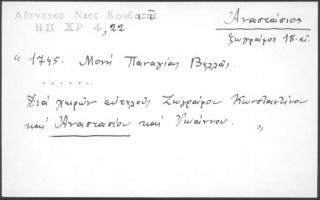 Αθηναγορ Νεος Κουβαρᾶς
ΗΠ ΧΡ 4, 22
Ἀναστάσιος
ζωγράφος 18. αἰ.
" 1745. Μονή Παναγίας Βελλᾶς.
. . . . . .
Διά χειρῶν εὐτελοῦς Ζωγράφου Κωνσταντίνου
καί Ἀναστασίου καί Ἰωάννου. "